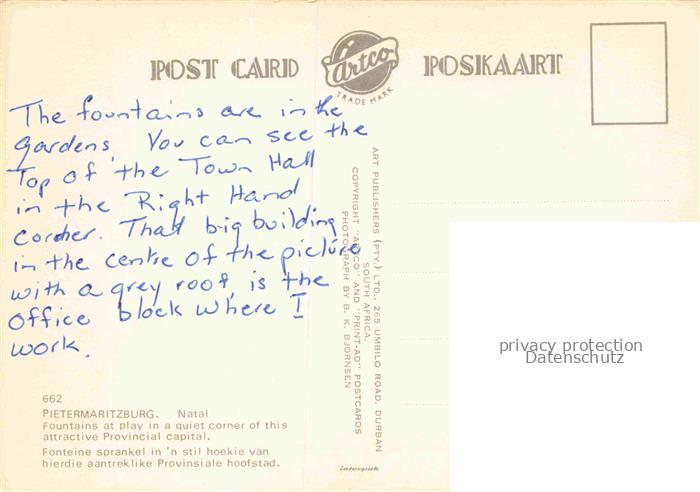 POST CARD Artco TRADE MARK POSKAART
The fountains are in the
gardens. You can see the
Top of the Town Hall
in the Right Hand
Corner. That big building
in the centre of the picture
with a grey roof, is the
Office block where I
work.
ART PUBLISHERS (PTY.) LTD., 265 UMBILO ROAD, DURBAN
SOUTH AFRICA.
COPYRIGHT "ARTCO" AND "PRINT-AD" POSTCARDS
PHOTOGRAPH BY B. K. BJORNSEN
privacy protection
Datenschutz
662
PIETERMARITZBURG. Natal
Fountains at play in a quiet corner of this
attractive Provincial capital.
Fonteine sprankel in 'n stil hoekie van
hierdie aantreklike Provinsiale hoofstad.
interpak